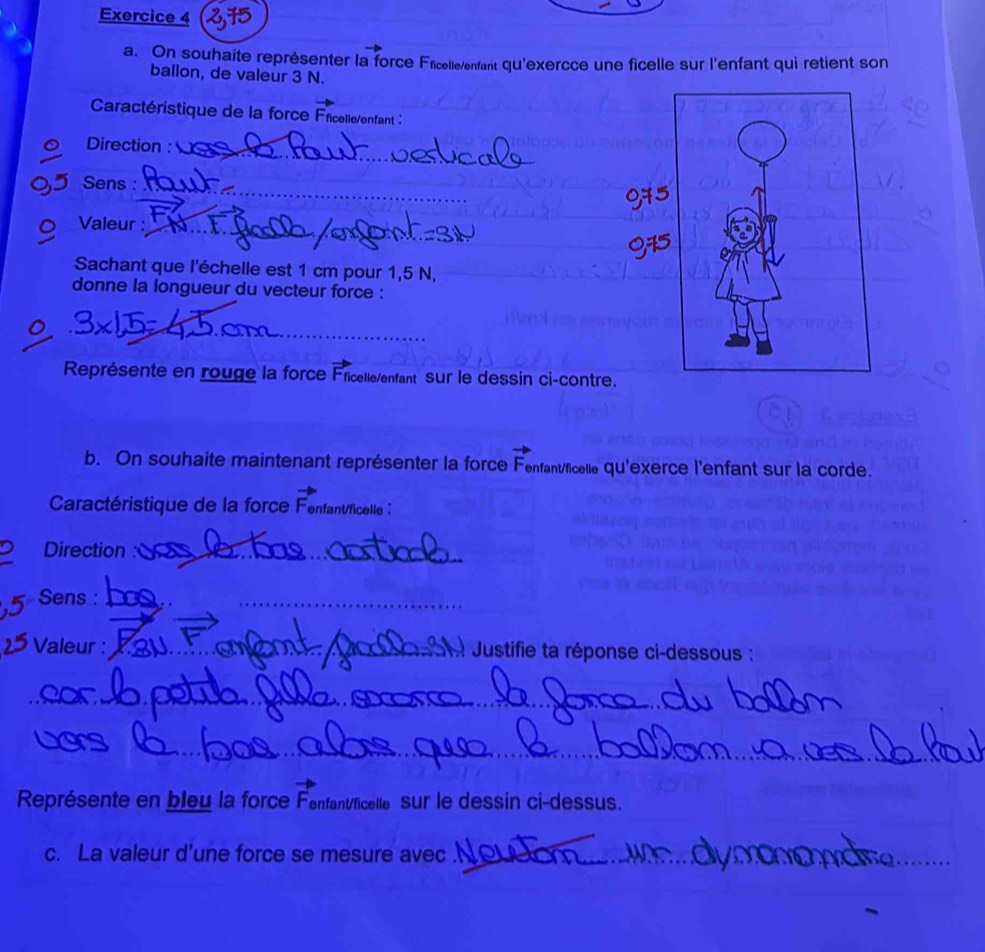 Exercice 4 2,75
a. On souhaite représenter la force Fficelle/enfant qu'exercce une ficelle sur l'enfant qui retient son
ballon, de valeur 3 N.
Caractéristique de la force Fficelle/enfant :
0 Direction : vers le haut verticale
0,5 Sens : haut
0,75
0 Valeur : FN F ficelle/enfant = 3N
0,75
Sachant que l'échelle est 1 cm pour 1,5 N,
donne la longueur du vecteur force :
0 3x1,5= 4,5 cm
Représente en rouge la force Fficelle/enfant sur le dessin ci-contre.
b. On souhaite maintenant représenter la force Fenfant/ficelle qu'exerce l'enfant sur la corde.
Caractéristique de la force Fenfant/ficelle :
0 Direction : vers le bas verticale
,5 Sens : bas
,25 Valeur : F 3N F enfant/ficelle=3N Justifie ta réponse ci-dessous :
car la petite fille exerce la force du ballon
vers le bas alors que le ballon va vers le haut
Représente en bleu la force Fenfant/ficelle sur le dessin ci-dessus.
c. La valeur d'une force se mesure avec Newton un dynamomètre